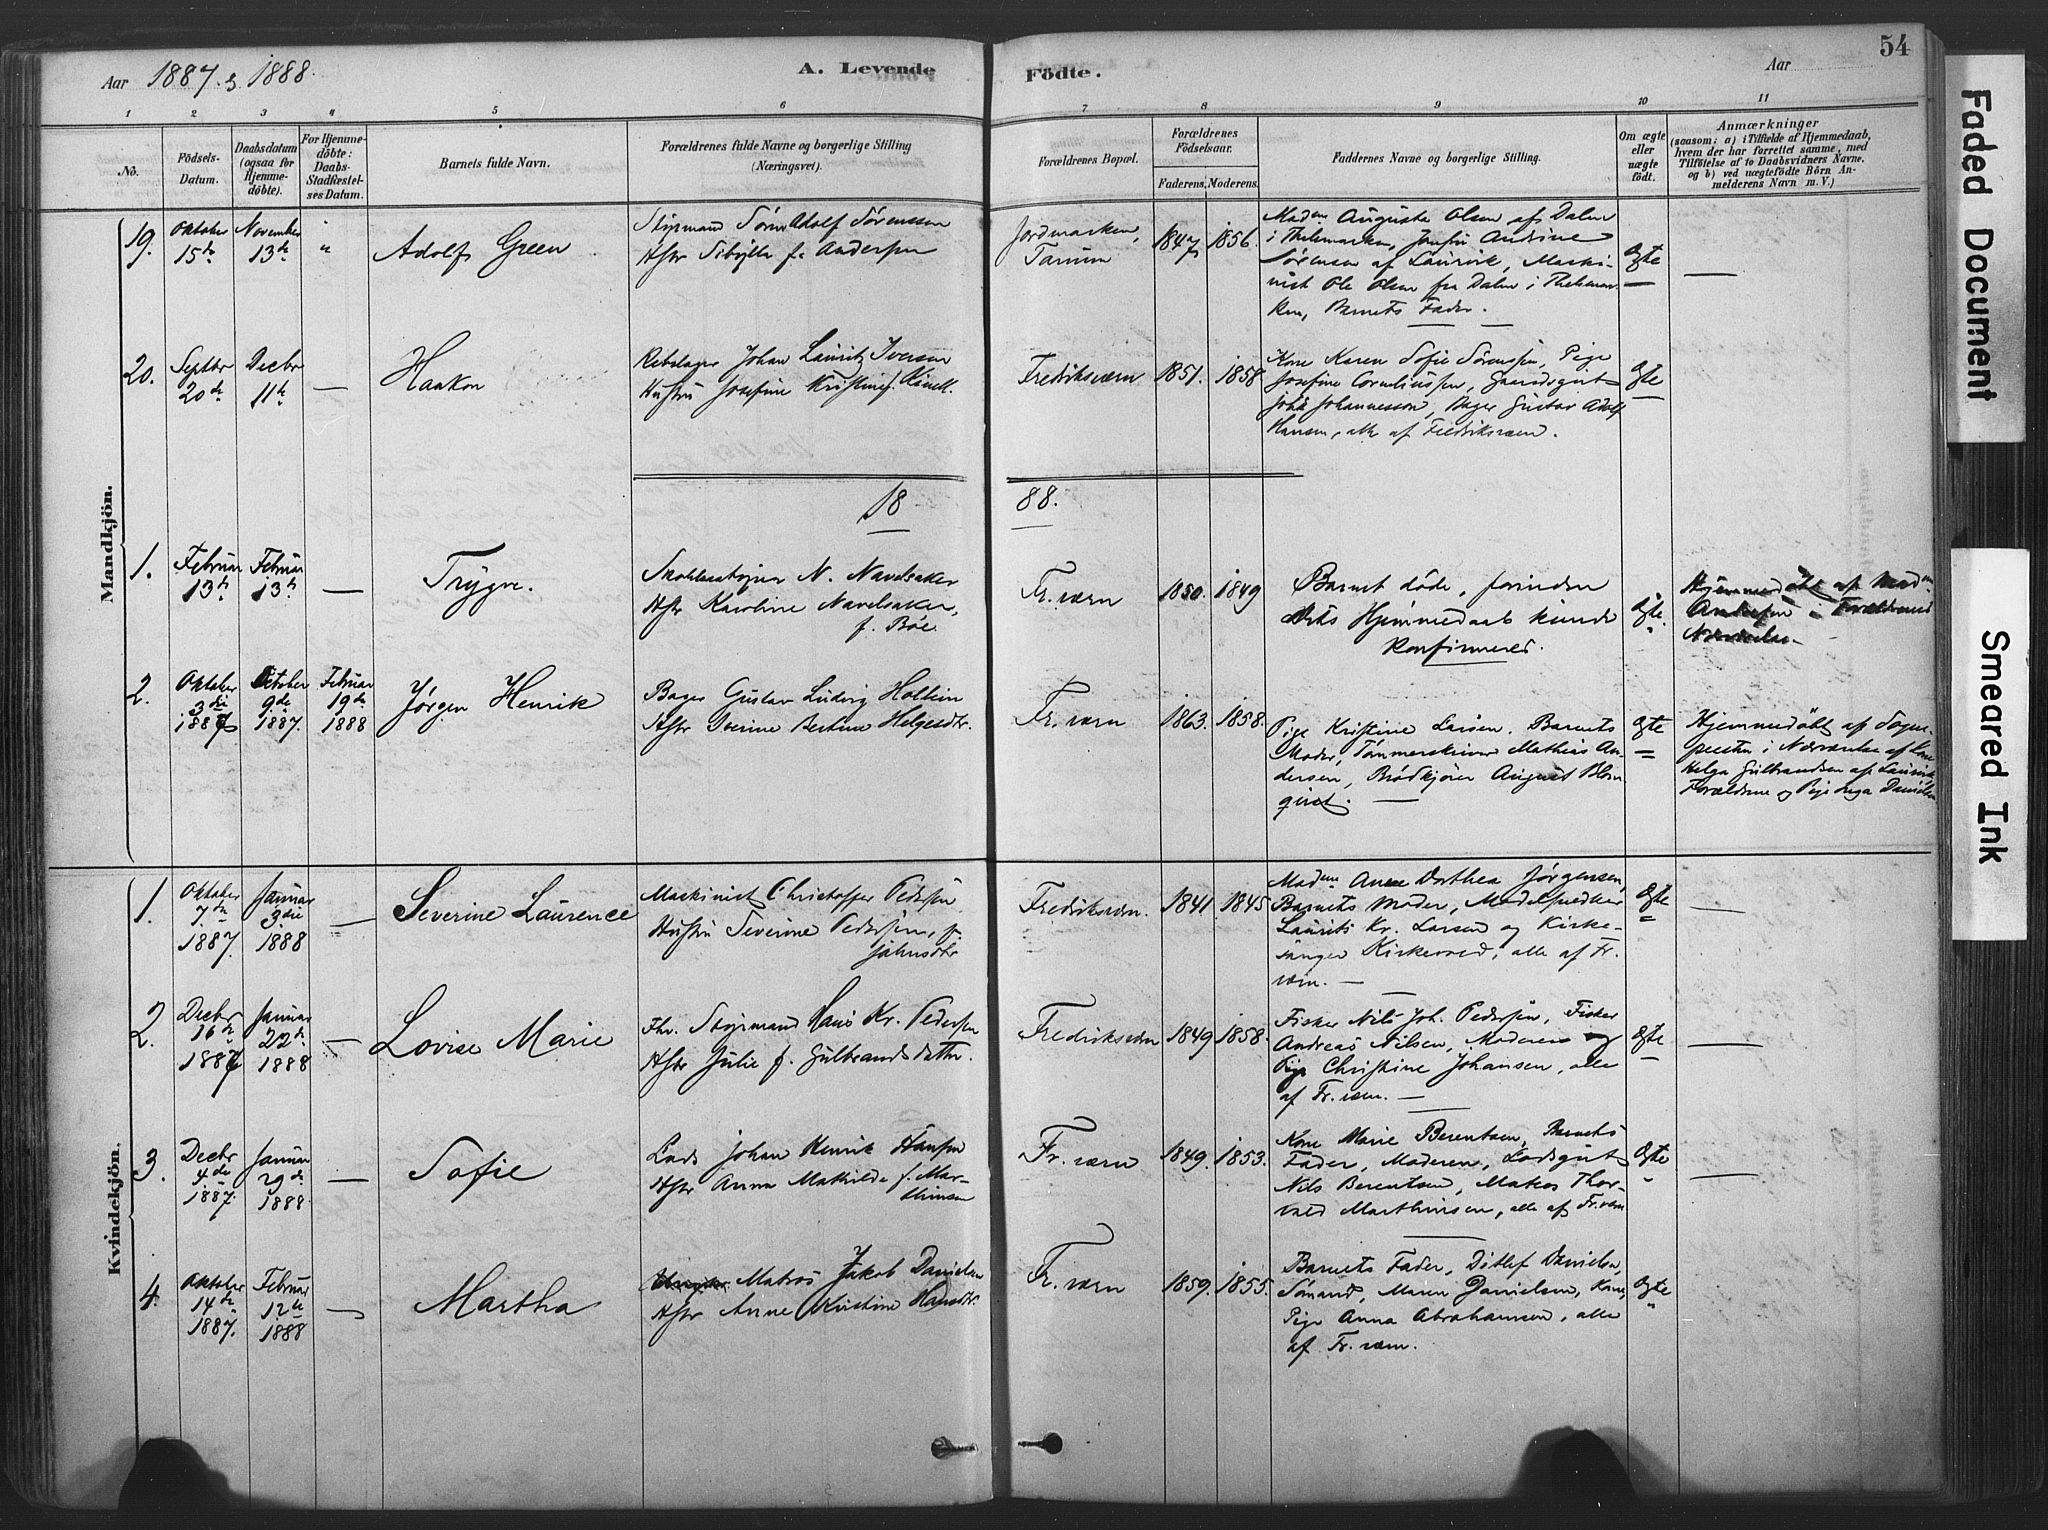 Aar 1887 & 1888.
A. Levende Födte.
Aar
54
1 2 3 4 5 6 7 8 9 10 11
No.
Födsels-Datum.
Daabsdatum (ogsaa for Hjemmedöbte).
For Hjemmedöbte: Daabs-Stadfæstelses Datum.
Barnets fulde Navn.
Forældrenes fulde Navne og borgerlige Stilling (Næringsvei).
Forældrenes Bopæl.
Forældrenes Födselsaar.
Faderens. Moderens.
Faddernes Navne og borgerlige Stilling.
Om ægte eller uægte födt.
Anmærkninger
(saasom: a) i Tilfælde af Hjemmedaab, hvem der har forrettet samme, med Tilföielse af to Daabsvidners Navne. og b) ved uægtefödte Börn Anmelderens Navn m. V.)
Mandkjön.
19.
Oktober 15de
November 13de
"
Adolf Green
Styrmand Sören Adolf Sörensen
Hstr Sibylla f. Andersen
Jordmarken, Tanum
1847
1856.
Madm Augusta Olsen af Dalen
i Thelemarken, Josefin Andrine
Sørensen af Laurvik, Maski-
nist Ole Olsen fra Dalen i Thelemar-
ken, Barnets Fader.
Ægte
20.
Septbr 20de
Decbr 11te
Haakon
Rebslager Johan Lauritz Iversen
Hustru Josefine Kristine f.
Fredriksværn
1851.
1858
Kone Karen Sofie Sørensen, Pige
Josefine Corneliussen,
Johannessen, Bager Gustav Adolf
Hansen, alle af Fredriksværn.
Ægte
18 88.
1.
Februar 13de
Februar 13de
Trygve.
N. Navelsaker
Hstr Karoline Navelsaker,
f. Böe.
Fr. værn
1850.
1849
Barnet döde, forinden
dets Hjemmedaab kunde
konfirmeres.
Ægte.
Hjemmedöbt af Madm
Andersen i Forældrenes
Nærværelse
2.
Oktober 3die 1887
October 9de 1887.
Februar 19de 1888
Jørgen Henrik
Bager Gustav Ludvig Holbein
Hstr Iverine Bertine Helgesdtr.
Fr. værn
1863.
1858.
Pige Kristine Larsen. Barnets
Moder, Tømmerskriver Mathias An-
dersen, Brödkjörer August Blom-
qvist.
Ægte
Hjemmedöbt af Sogne-
presten i Nærværelse af Kone
Helga Gulbrandsen af Laurvik,
Forældrene og Pige Inga Danielsen
Kvindekjön.
1.
Oktober 7de 1887.
Januar 3die 1888
Severine Laurence
Maskinist Christoffer Pedersen
Hustru Severine Pedersen, f.
Jahnsdtr
Fredriksværn.
1841
1845
Madm Anne Dorthea Jørgensen,
Barnets Moder, Modelsnedker
Laurits Kr. Larsen og Kirke-
sanger Kirkevold, alle af Fr.
værn.
Ægte
2.
Decbr 16de 1887
Januar 22de 1888
Lovise Marie
Fhv. Styrmand Hans Kr. Pedersen
Hstr Julie f. Gulbrandsdatter.
Fredriksværn
1849
1858.
Fisker Nils Joh. Pedersen, Fisker
Andreas Nilsen, Moderen og
Pige Christine Johansen, alle
af Fr. værn.
Ægte
3.
Decbr 4de 1887.
Januar 29de 1888.
Sofie
Lods Johan Henrik Hansen
Hstr Anna Mathilde f. Mar-
thinsen
Fr. værn
1849.
1853.
Kone Marie Berentsen, Barnets
Fader, Moderen, Lodsgut
Nils Berentsen, Matros Thor-
vald Marthinsen, alle af Fr. værn
Ægte
4.
Oktober 14de 1887.
Februar 12te 1888
Martha
Matros Jakob Danielsen
Hstr Anne Kristine Hansdtr.
Fr. værn
1859.
1855.
Barnets Fader, Ditlef Danielsen,
Sömand, Maren Danielsen, Kone,
Pige Anna Abrahamsen, alle
af Fr. værn.
Ægte
Faded Document
Smeared Ink